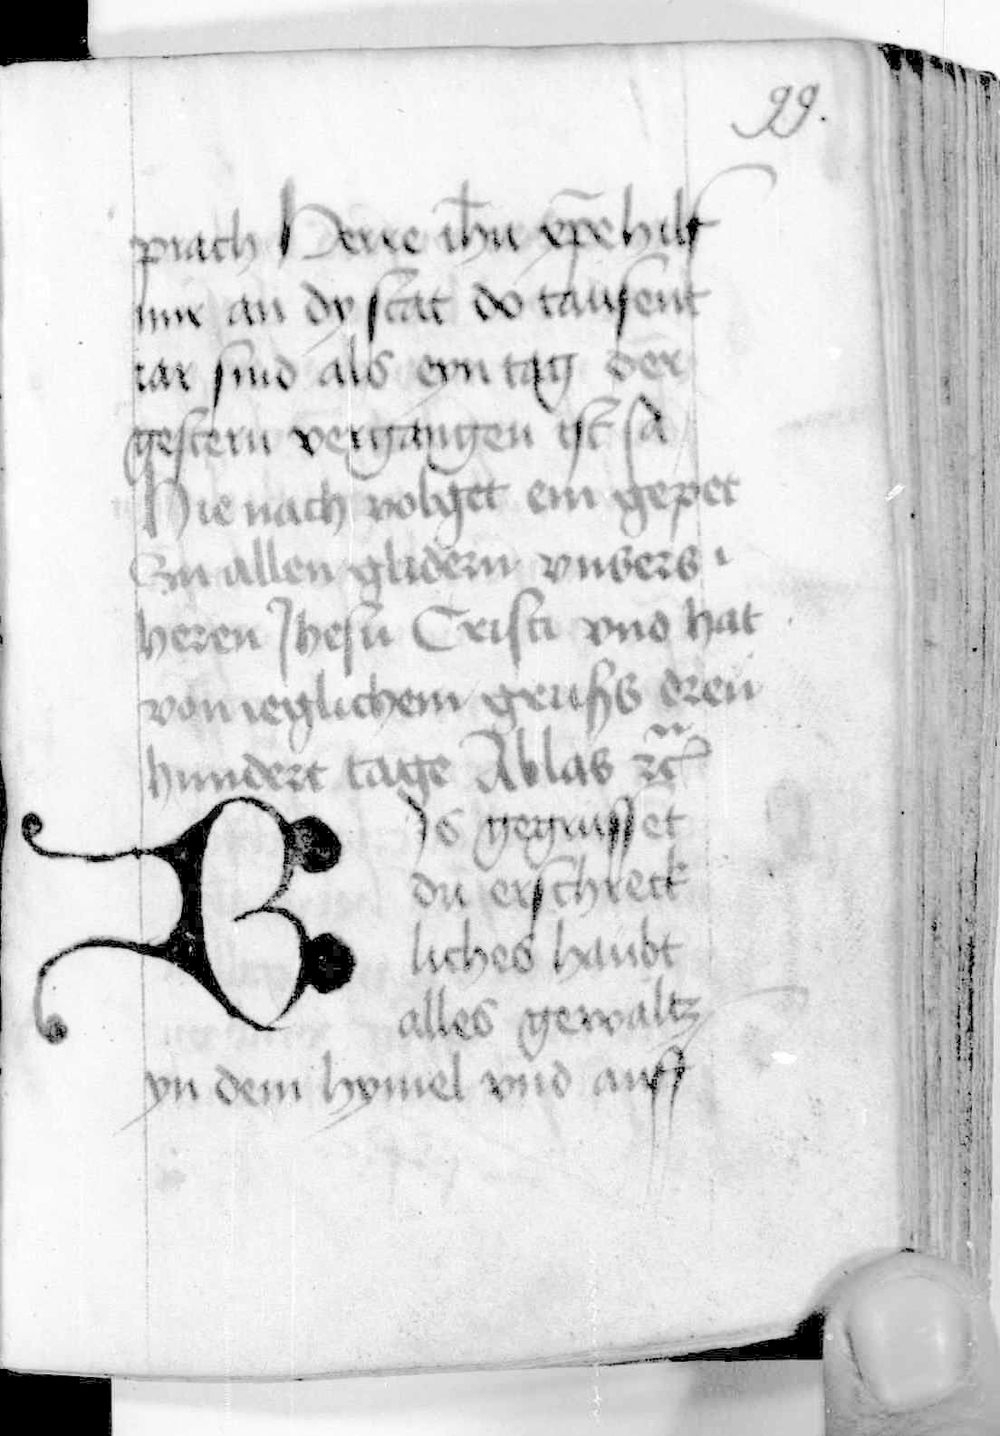 99.
prach Herre ihu xpe hilf
mir an dy stat do tausent
iar sind als eyn tag der
gestern vergangen ist
Hie nach volget ein gepet
Zu allen glidern vnsers
heren Jhesu Cristi vnd hat
von ieglichem gruss dreu
hundert tage Ablas ⁊c̃
BJs gegrusset
du erschreck
liches haubt
alles gewaltz
yn dem hymel vnd auff